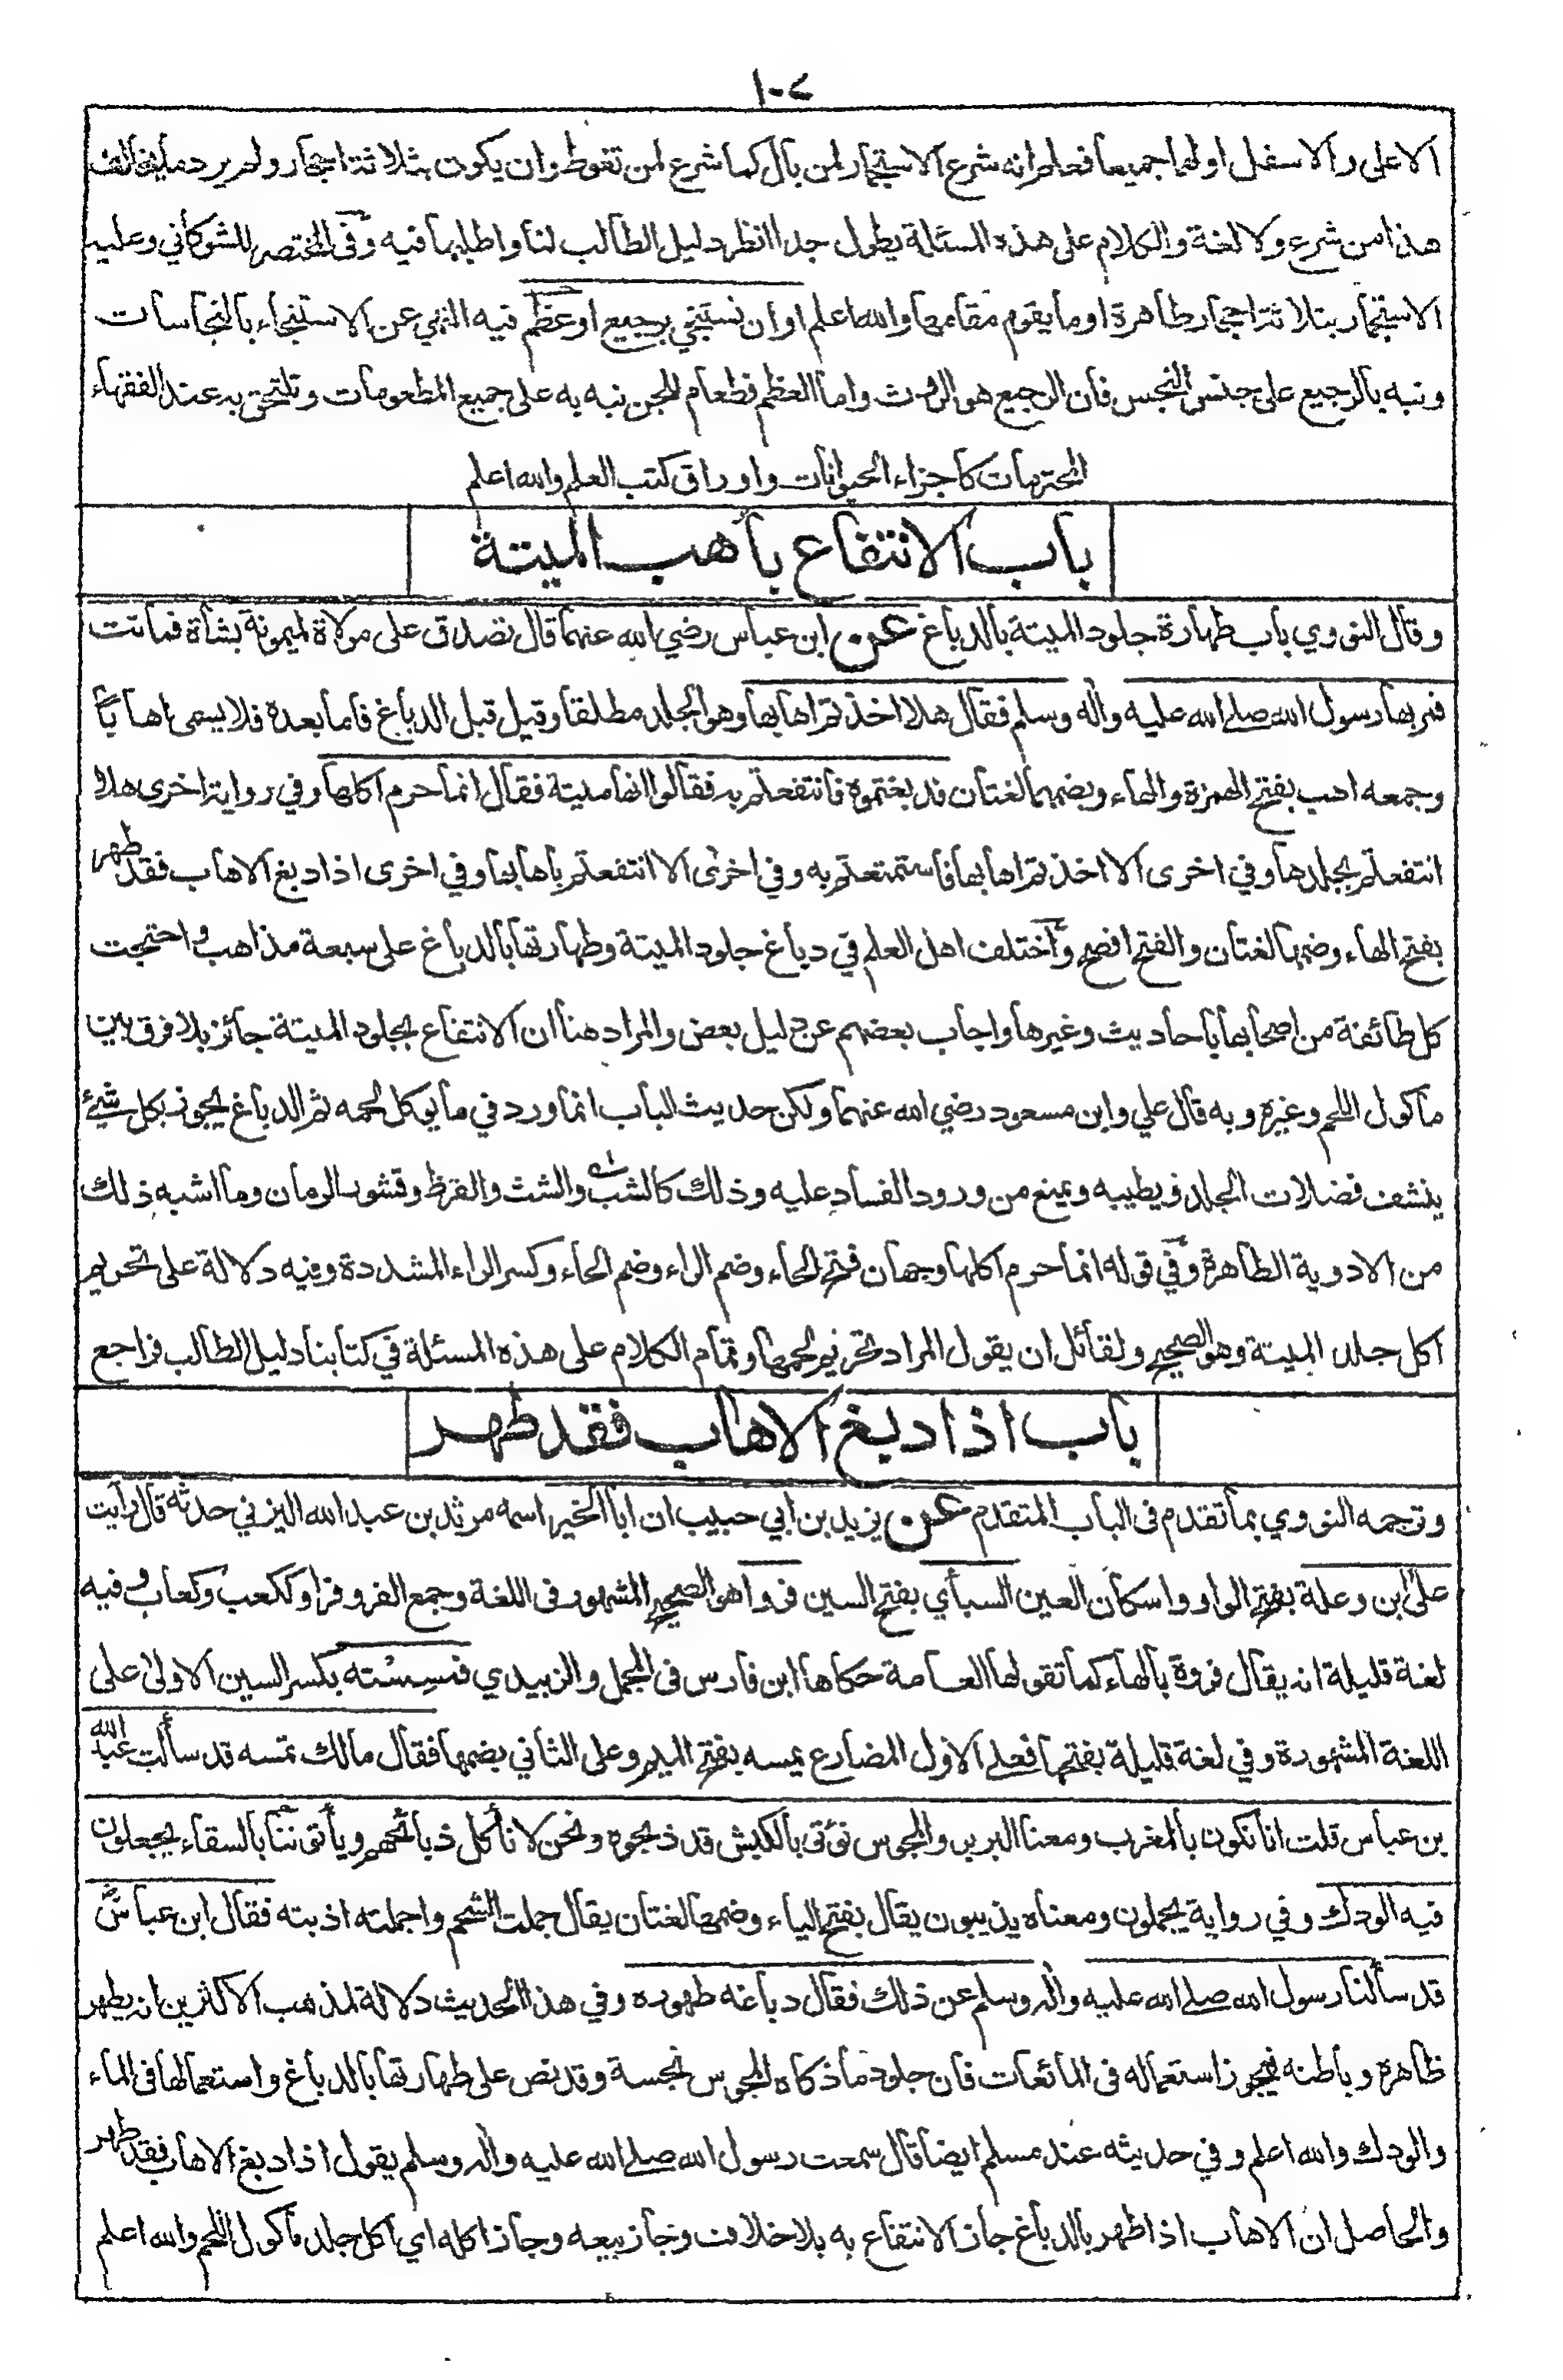 ١٠٧
الاعلى والاسفل اولهما جميعا فعلم انه شرع الاستجمار لمن بال كما شرع لمن تغوط وان يكون بثلاثة احجار ولم يرد ما يخالف
هذا من شرع ولا لغة والكلام على هذه المسئلة يطول جدا انظر دليل الطالب لنا واطلبها فيه وفى المختصر للشوكاني وعليه
الاستجمار بثلاثة احجار طاهرة او ما يقوم مقامها والله اعلم او ان نستنجي برجيع او عظم فيه النهي عن الاستنجاء بالنجاسات
ونبه بالرجيع على جنس النجس فان الرجيع هو الروث واما العظم فطعام للجن نبه به على جميع المطعومات وتلتحق به عند الفقهاء
المحترمات كاجزاء الحيوانات واوراق كتب العلم والله اعلم
باب الانتفاع بأهب الميتة
وقال النووي باب طهارة جلود الميتة بالدباغ عن ابن عباس رضي الله عنهما قال تصدق على مولاة لميمونة بشاة فماتت
فمر بها رسول الله صلى الله عليه واله وسلم فقال هلا اخذتم اهابها وهو الجلد مطلقا وقيل قبل الدباغ فاما بعده فلا يسمى اهابا
وجمعه اهب بفتح الهمزة والهاء وبضمهما لغتان فدبغتموه فانتفعتم به فقالوا انها ميتة فقال انما حرم اكلها وفي رواية اخرى هلا
انتفعتم بجلدها وفي اخرى الا اخذتم اهابها فاستمتعتم به وفي اخرى الا انتفعتم باهابها وفي اخرى اذا دبغ الاهاب فقد طهر
بفتح الهاء وضمها لغتان والفتح افصح واختلف اهل العلم في دباغ جلود الميتة وطهارتها بالدباغ على سبعة مذاهب واحتجت
كل طائفة من اصحابها باحاديث وغيرها واجاب بعضهم عن دليل بعض والمراد هنا ان الانتفاع بجلود الميتة جائز بلا فرق بين
ماكول اللحم وغيره وبه قال علي وابن مسعود رضي الله عنهما ولكن حديث الباب انما ورد في ما يوكل لحمه ثم الدباغ يجوز بكل شيئ
ينشف فضلات الجلد ويطيبه ويمنع من ورود الفساد عليه وذلك كالشب والشث والقرظ وقشور الرمان وما اشبه ذلك
من الادوية الطاهرة وفي قوله انما حرم اكلها وجهان فتح الحاء وضم الراء وضم الحاء وكسر الراء المشددة وفيه دلالة على تحريم
اكل جلد الميتة وهو الصحيح ولقائل ان يقول المراد تحريم لحمها وتمام الكلام على هذه المسئلة في كتابنا دليل الطالب فراجع
باب اذا دبغ الاهاب فقد طهر
وترجمه النووي بما تقدم فى الباب المتقدم عن يزيد بن ابي حبيب ان ابا الخير اسمه مرثد بن عبد الله اليزني حدثه قال رأيت
على ابن وعلة بفتح الواو واسكان العين السبأي بفتح السين فروا هو الصحيح المشهور فى اللغة وجمع الفرو فرا وككعب وكعاب وفيه
لغة قليلة انه يقال فروة بالهاء كما تقولها العامة حكاها ابن فارس فى المجمل والزبيدي فمسِسْته بكسر السين الاولى على
اللغة المشهورة وفي لغة قليلة بفتحها فعلى الاول المضارع يمسه بفتح الميم وعلى الثاني بضمها فقال مالك تمسه قد سألت عبد الله
بن عباس قلت انا نكون بالمغرب ومعنا البربر والمجوس نؤتى بالكبش قد ذبحوه ونحن لا نأكل ذبائحهم ويأتوننا بالسقاء يجعلون
فيه الودك وفي رواية يجملون ومعناه يذيبون يقال بفتح الياء وضمها لغتان يقال جملت الشحم واجملته اذبته فقال ابن عباس
قد سألنا رسول الله صلى الله عليه واله وسلم عن ذلك فقال دباغه طهوره وفي هذا الحديث دلالة لمذهب الاكثرين انه يطهر
ظاهره وباطنه فيجوز استعماله فى المائعات فان جلود ما ذكاه المجوس نجسة وقد نص على طهارتها بالدباغ واستعمالها فى الماء
والودك والله اعلم وفي حديثه عند مسلم ايضا قال سمعت رسول الله صلى الله عليه واله وسلم يقول اذا دبغ الاهاب فقد طهر
والحاصل ان الاهاب اذا طهر بالدباغ جاز الانتفاع به بلا خلاف وجاز بيعه وجاز اكله اي اكل جلد ماكول اللحم والله اعلم